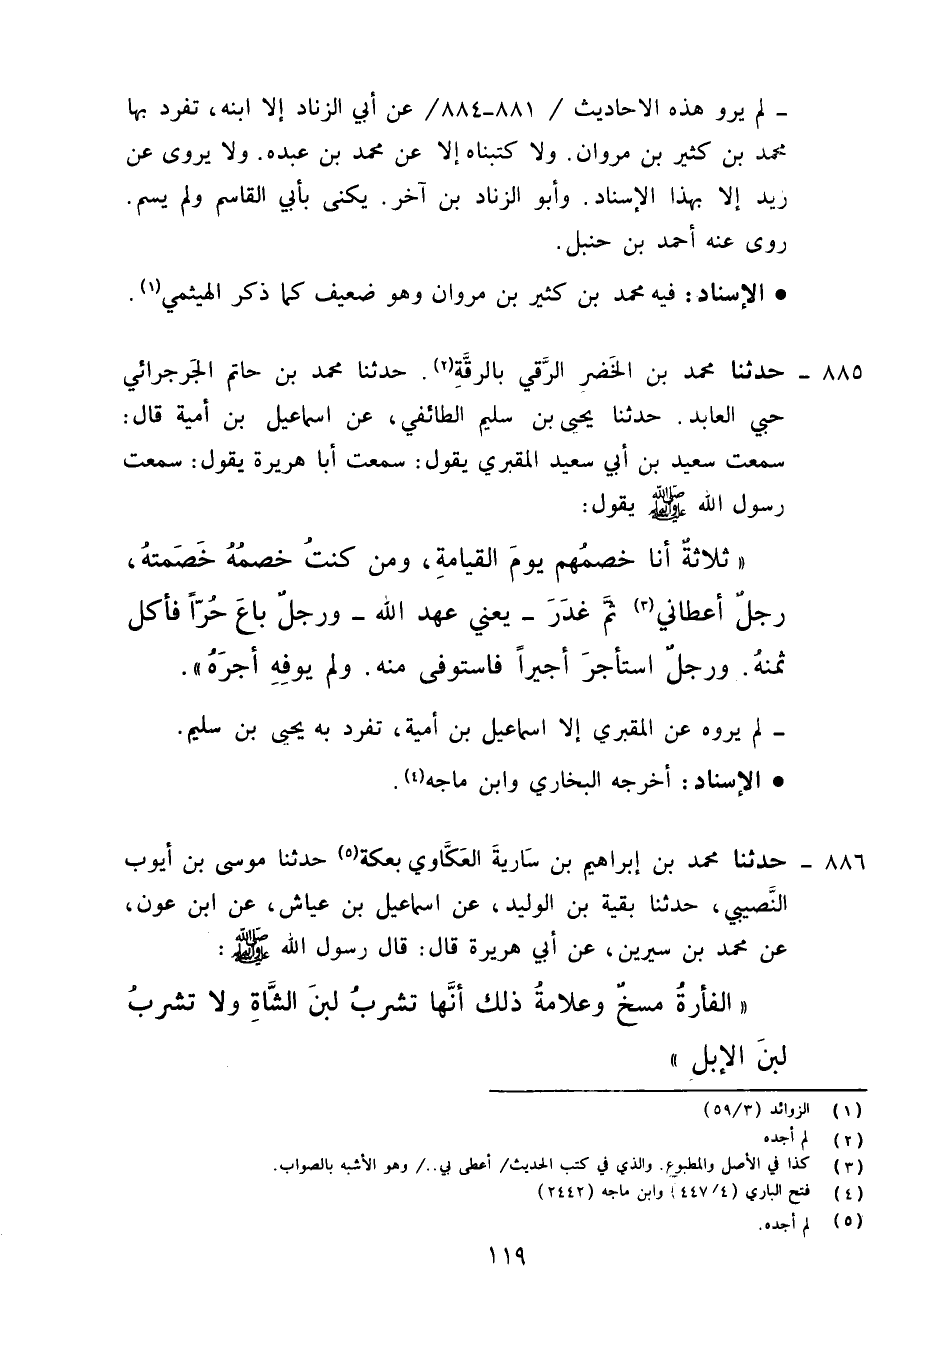 ـ لم يرو هذه الاحاديث / ٨٨١ـ٨٨٤/ عن أبي الزناد إلا ابنه، تفرد بها
محمد بن كثير بن مروان. ولا كتبناه إلا عن محمد بن عبده. ولا يروى عن
زيد إلا بهذا الإسناد. وأبو الزناد بن آخر. يكنى بأبي القاسم ولم يسم.
روى عنه أحمد بن حنبل.
● الإسناد: فيه محمد بن كثير بن مروان وهو ضعيف كما ذكر الهيثمي(١).
٨٨٥ ـ حدثنا محمد بن الخَضر الرَّقي بالرقَّةِ(٢). حدثنا محمد بن حاتم الجَرجرائي
حبي العابد. حدثنا يحيى بن سليم الطائفي، عن اسماعيل بن أمية قال:
سمعت سعيد بن أبي سعيد المقبري يقول: سمعت أبا هريرة يقول: سمعت
رسول الله ﷺ يقول:
« ثلاثةٌ أنا خصمُهم يومَ القيامةِ، ومن كنتُ خصمُهُ خَصَمتهُ،
رجلٌ أعطاني(٣) ثمَّ غدَرَ ـ يعني عهد الله ـ ورجلٌ باعَ حُرّاً فأكل
ثمنهُ. ورجلٌ استأجرَ أجيراً فاستوفى منه. ولم يوفِهِ أجرَهُ».
ـ لم يروه عن المقبري إلا اسماعيل بن أمية، تفرد به يحيى بن سليم.
● الإسناد: أخرجه البخاري وابن ماجه(٤).
٨٨٦ ـ حدثنا محمد بن إبراهيم بن سَاريةَ العَكَّاوي بعكة(٥) حدثنا موسى بن أيوب
النَّصيبي، حدثنا بقية بن الوليد، عن اسماعيل بن عياش، عن ابن عون،
عن محمد بن سيرين، عن أبي هريرة قال: قال رسول الله ﷺ:
« الفأرةُ مسخٌ وعلامةُ ذلك أنَّها تشربُ لبنَ الشَّاةِ ولا تشربُ
لبنَ الإبلِ »
(١) الزوائد (٥٩/٣)
(٢) لم أجده
(٣) كذا في الأصل والمطبوع. والذي في كتب الحديث/ أعطى بي../ وهو الأشبه بالصواب.
(٤) فتح الباري (٤٤٧/٤) وابن ماجه (٢٤٤٢)
(٥) لم أجده.
١١٩